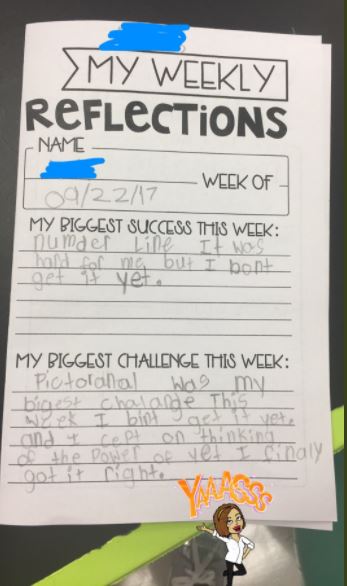 MY WEEKLY
REFLECTIONS
NAME
WEEK OF
09/22/17
MY BIGGEST SUCCESS THIS WEEK:
numder Line It was
hard for me but I bont
get it yet.
MY BIGGEST CHALLENGE THIS WEEK:
Pictoranal was my
bigest chalange This
week I bint get it yet.
and I cept on thinking
of the Power of yet I finaly
got it right.
YAAAGSSS